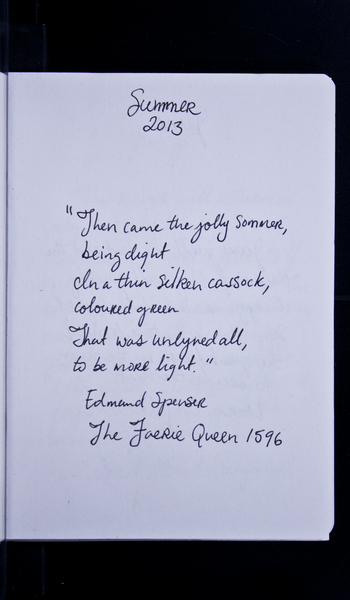 Summer
2013
"Then came the jolly Sommer,
being dight
In a thin silken cassock,
coloured green
That was unlyned all,
to be more light."
Edmund Spenser
The Faerie Queen 1596